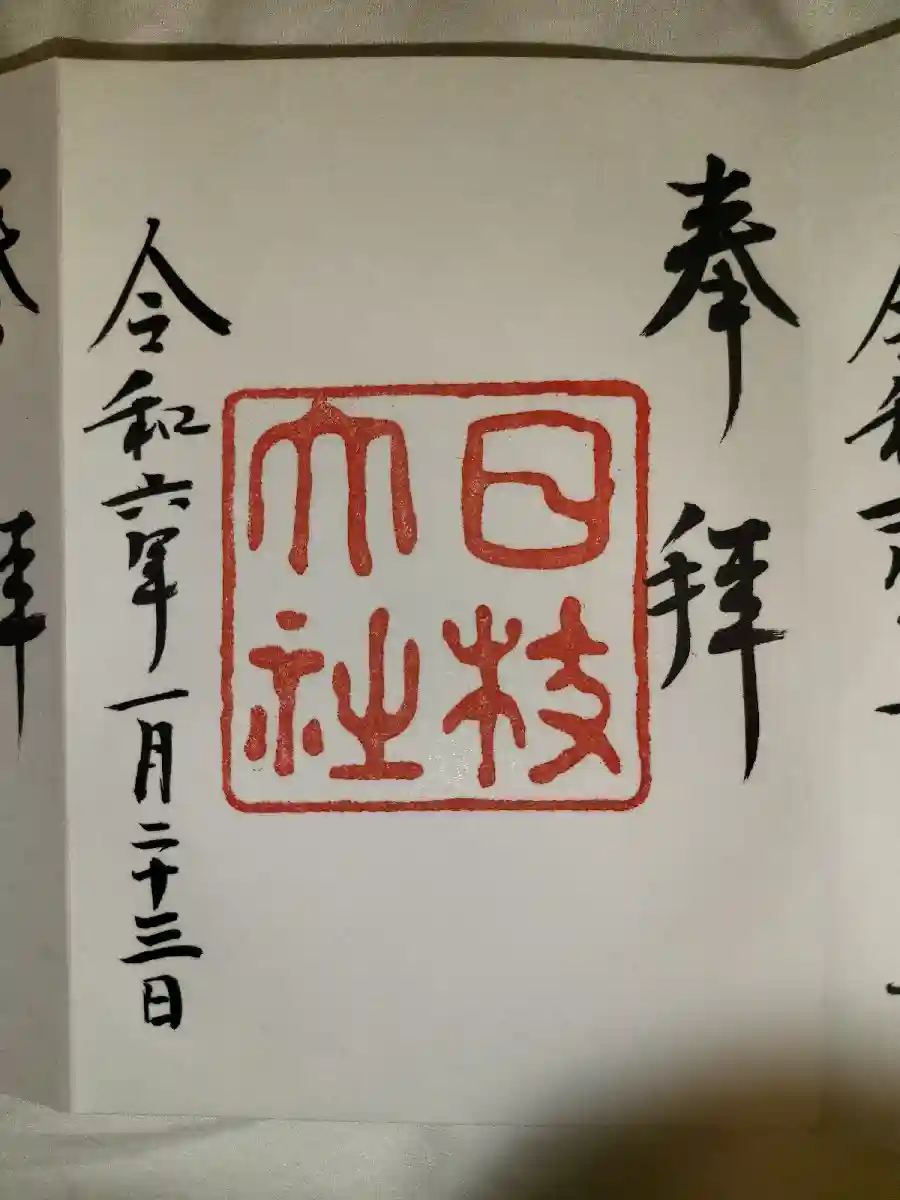 奉拝
日枝
大社
令和六年一月二十三日